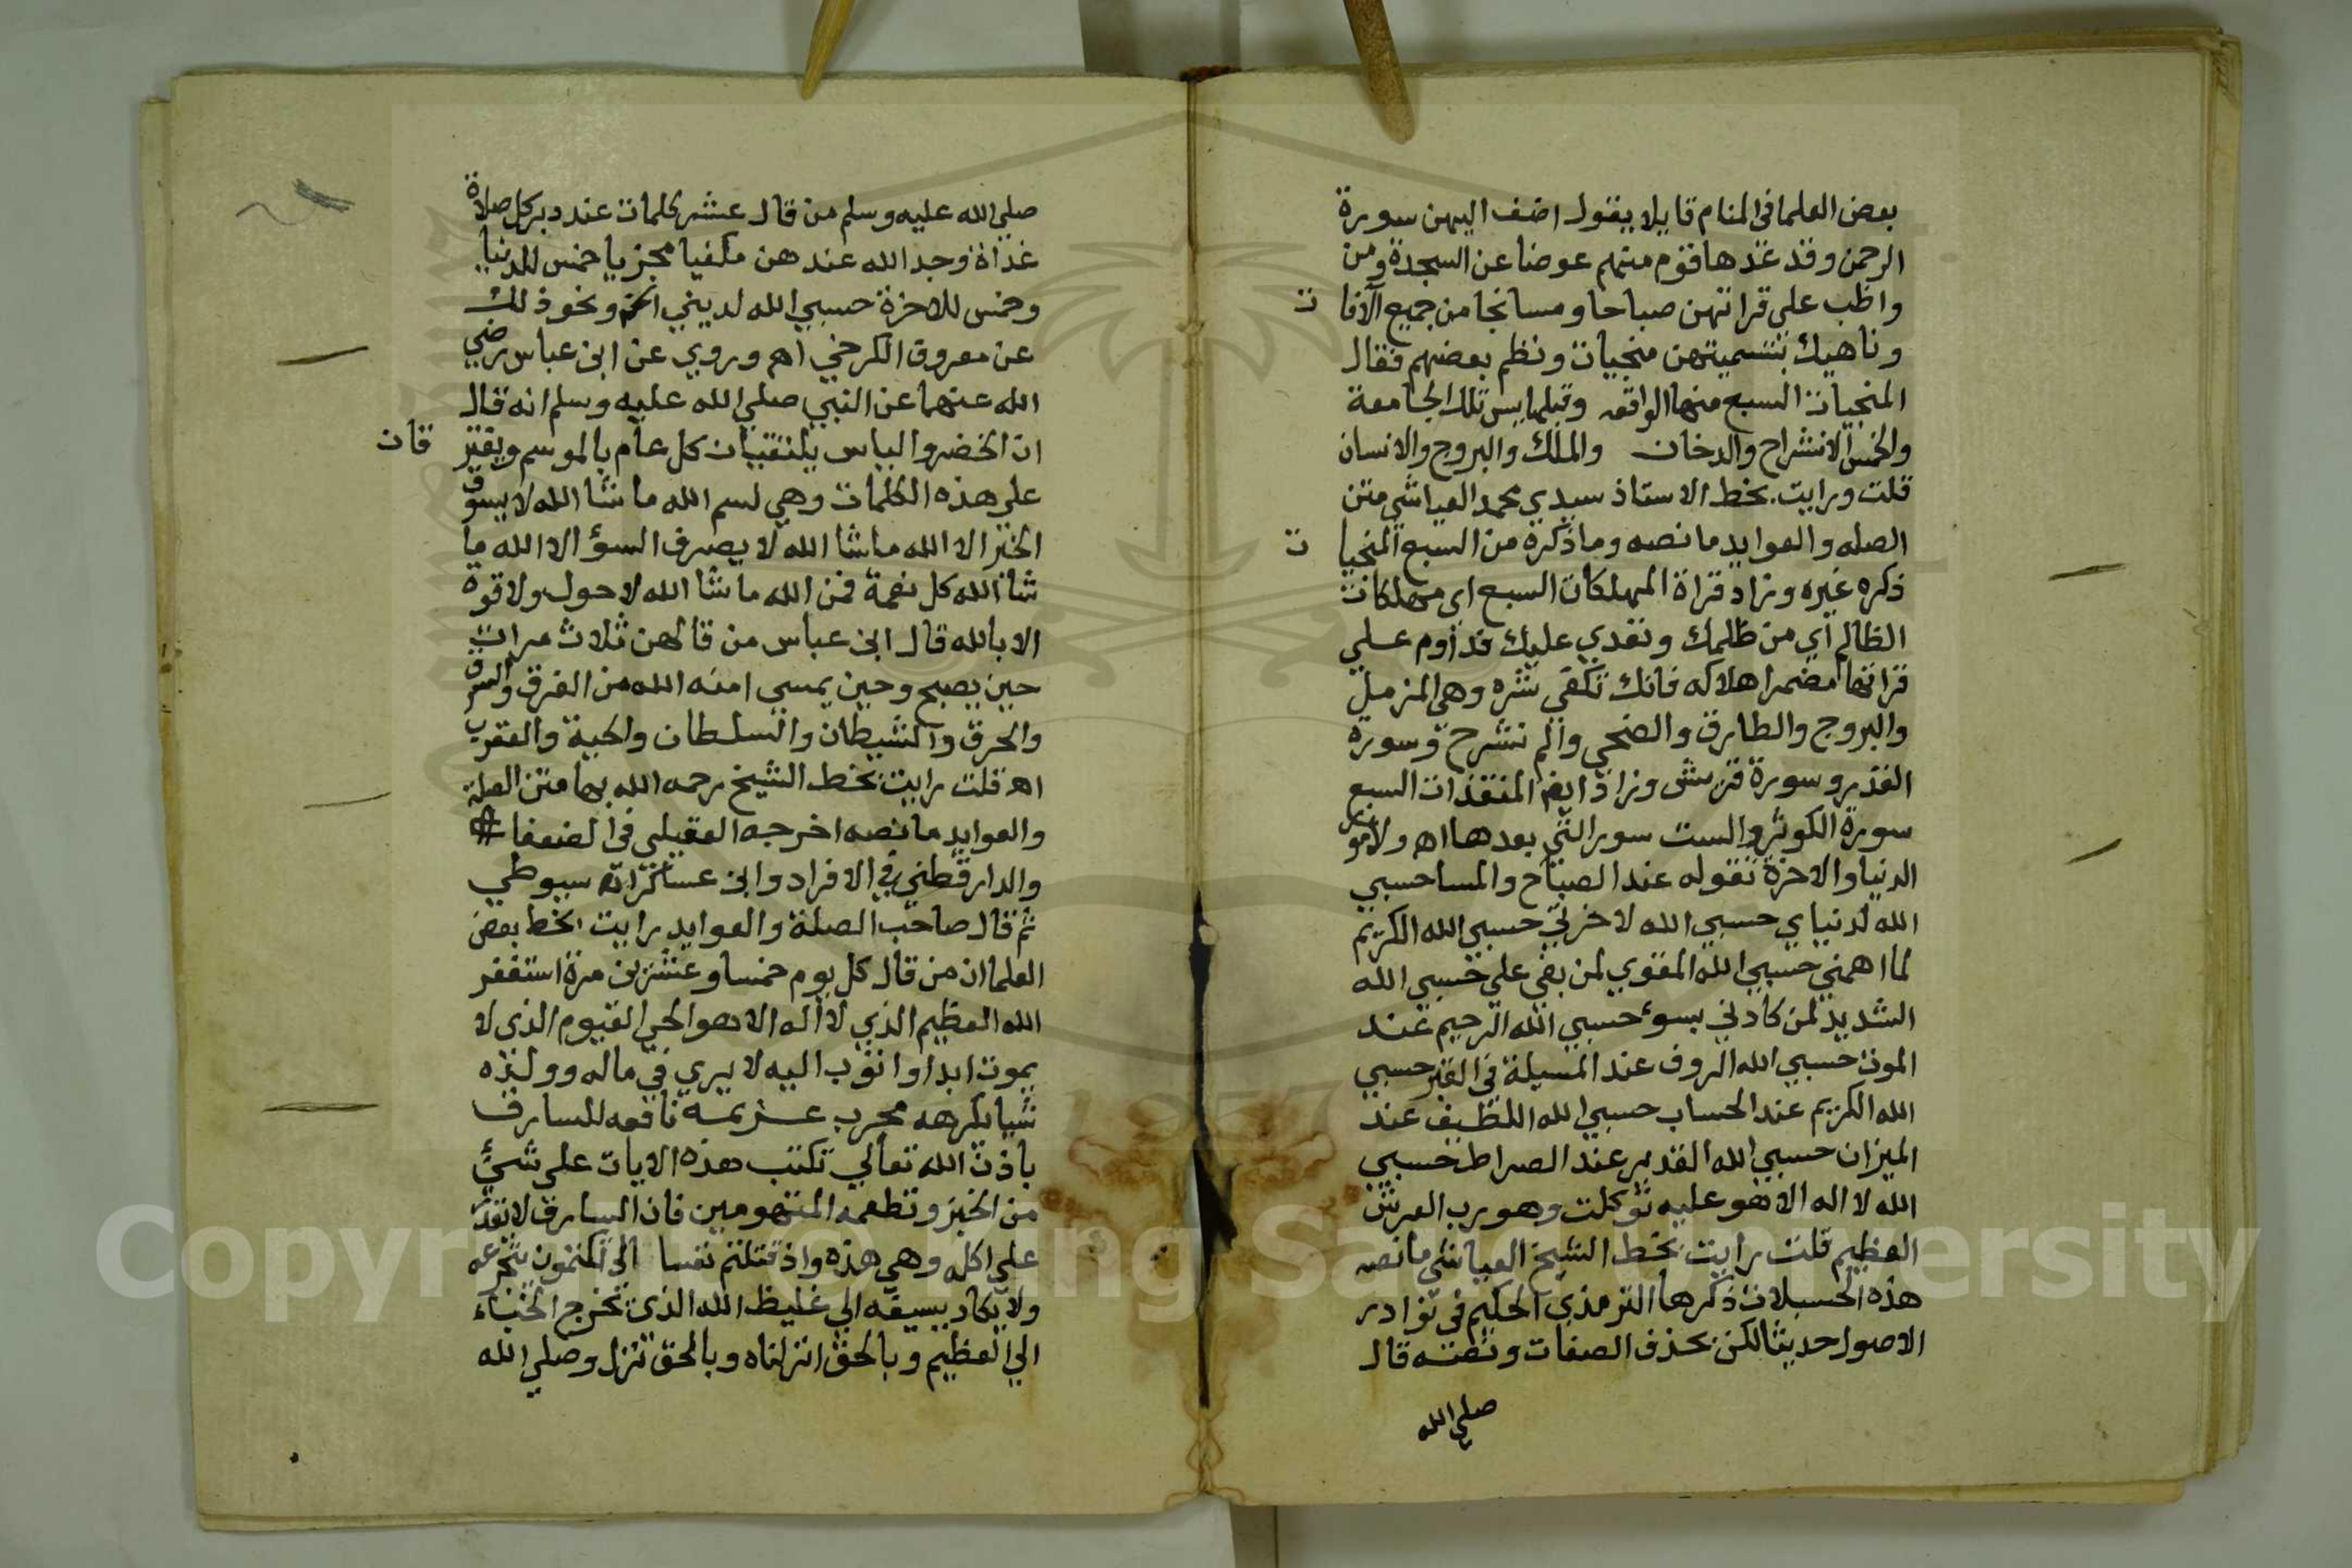 بعض العلما في المنام قايلا يقول اضف اليهن سورة
الرحمن وقد عدها قوم منهم عوضا عن السجدة ومن
واظب على قراتهن صباحا ومسا نجا من جميع الآفا ت
وناهيك بتسميتهن منجيات ونظم بعضهم فقال
المنجيات السبع منها الواقعه وقبلها يس تلك الجامعة
والخمس الانشراح والدخان والملك والبروج والانسان
قلت ورايت بخط الاستاذ سيدي محمد العياشي متن
الصله والعوايد ما نصه وما ذكره من السبع المنجيا ت
ذكره غيره وزاد قراة المهلكات السبع اى مهلكات
الظالم اي من ظلمك وتعدي عليك فداوم علي
قراتها مضمرا هلاكه فانك تكفى شره وهي المزمل
والبروج والطارق والضحي والم نشرح وسورة
القدر وسورة قريش وزاد ايض المنقذات السبع
سورة الكوثر والست سور التي بعدها اه ولامور
الدنيا والاخرة تقوله عند الصباح والمسا حسبي
الله لدنياي حسبي الله لاخرتي حسبي الله الكريم
لما اهمني حسبي الله القوي لمن بغي علي حسبي الله
الشديد لمن كادني بسوء حسبي الله الرحيم عند
الموت حسبي الله الروف عند المسيلة في القبر حسبي
الله الكريم عند الحساب حسبي الله اللطيف عند
الميزان حسبي الله القدير عند الصراط حسبي
الله لا اله الا هو عليه توكلت وهو رب العرش
العظيم قلت رايت بخط الشيخ العياشي ما نصه
هذه الحسبلات ذكرها الترمذي الحكيم في نوادر
الاصول حديثا لكن بحذف الصفات ونصه قال
صلي الله
صلي الله عليه وسلم من قال عشر كلمات عند دبر كل صلاة
غداة وجد الله عندهن مكفيا مجزيا خمس للدنيا
وخمس للاخرة حسبي الله لديني الخ ونحو ذلك
عن معروف الكرخي اه وروي عن ابن عباس رضي
الله عنهما عن النبي صلي الله عليه وسلم انه قال
ان الخضر والياس يلتقيان كل عام بالموسم ويفتر قان
علي هذه الكلمات وهي بسم الله ما شا الله لا يسوق
الخير الا الله ما شا الله لا يصرف السؤ الا الله ما
شا الله كل نعمة فمن الله ما شا الله لا حول ولا قوة
الا بالله قال ابن عباس من قالهن ثلاث مرات
حين يصبح وحين يمسي امنه الله من الغرق والسرق
والحرق والشيطان والسلطان والحية والعقرب
اه قلت رايت بخط الشيخ رحمه الله بهامتن الصلة
والعوايد ما نصه اخرجه العقيلي في الضعفا
والدارقطني في الافراد وابن عساكر اه سيوطي
ثم قال صاحب الصلة والعوايد رايت بخط بعض
العلما ان من قال كل يوم خمسا وعشرين مرة استغفر
الله العظيم الذي لا اله الا هو الحي القيوم الذي لا
يموت ابدا واتوب اليه لا يري في ماله وولده
شيا يكرهه مجرب عزيمه نافعه للسارق
باذن الله تعالي تكتب هذه الايات على شيئ
من الخبز وتطعمه المتهومين فان السارق لا يقدر
علي اكله وهي هذه واذ قتلتم نفسا الي تكتمون يتجرعه
ولا يكاد يسيغه الي غليظ الله الذي يخرج الخبناء
الي العظيم وبالحق انزلناه وبالحق نزل وصلي الله
Copyright © King Saud University
1957